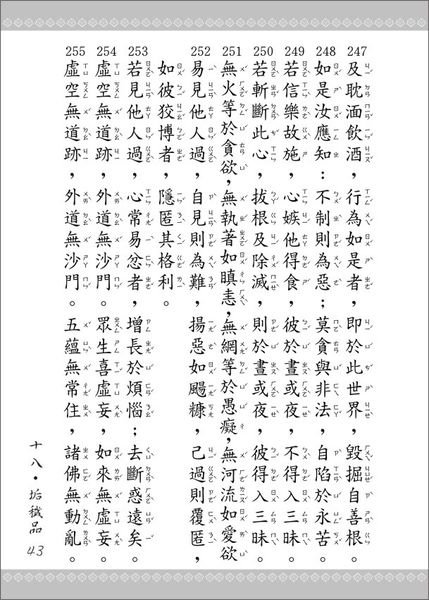 247 及耽湎飲酒，行為如是者，即於此世界，毀掘自善根。
248 如是汝應知：不制則為惡；莫貪與非法，自陷於永苦。
249 若信樂故施，心嫉他得食，彼於晝或夜，不得入三昧。
250 若斬斷此心，拔根及除滅，則於晝或夜，彼得入三昧。
251 無火等於貪欲，無執著如瞋恚，無網等於愚癡，無河流如愛欲
252 易見他人過，自見則為難，揚惡如颺糠，己過則覆匿，
如彼狡博者，隱匿其格利。
253 若見他人過，心常易忿者，增長於煩惱；去斷惑遠矣。
254 虛空無道跡，外道無沙門。眾生喜虛妄，如來無虛妄。
255 虛空無道跡，外道無沙門。五蘊無常住，諸佛無動亂。
十八·垢穢品 43